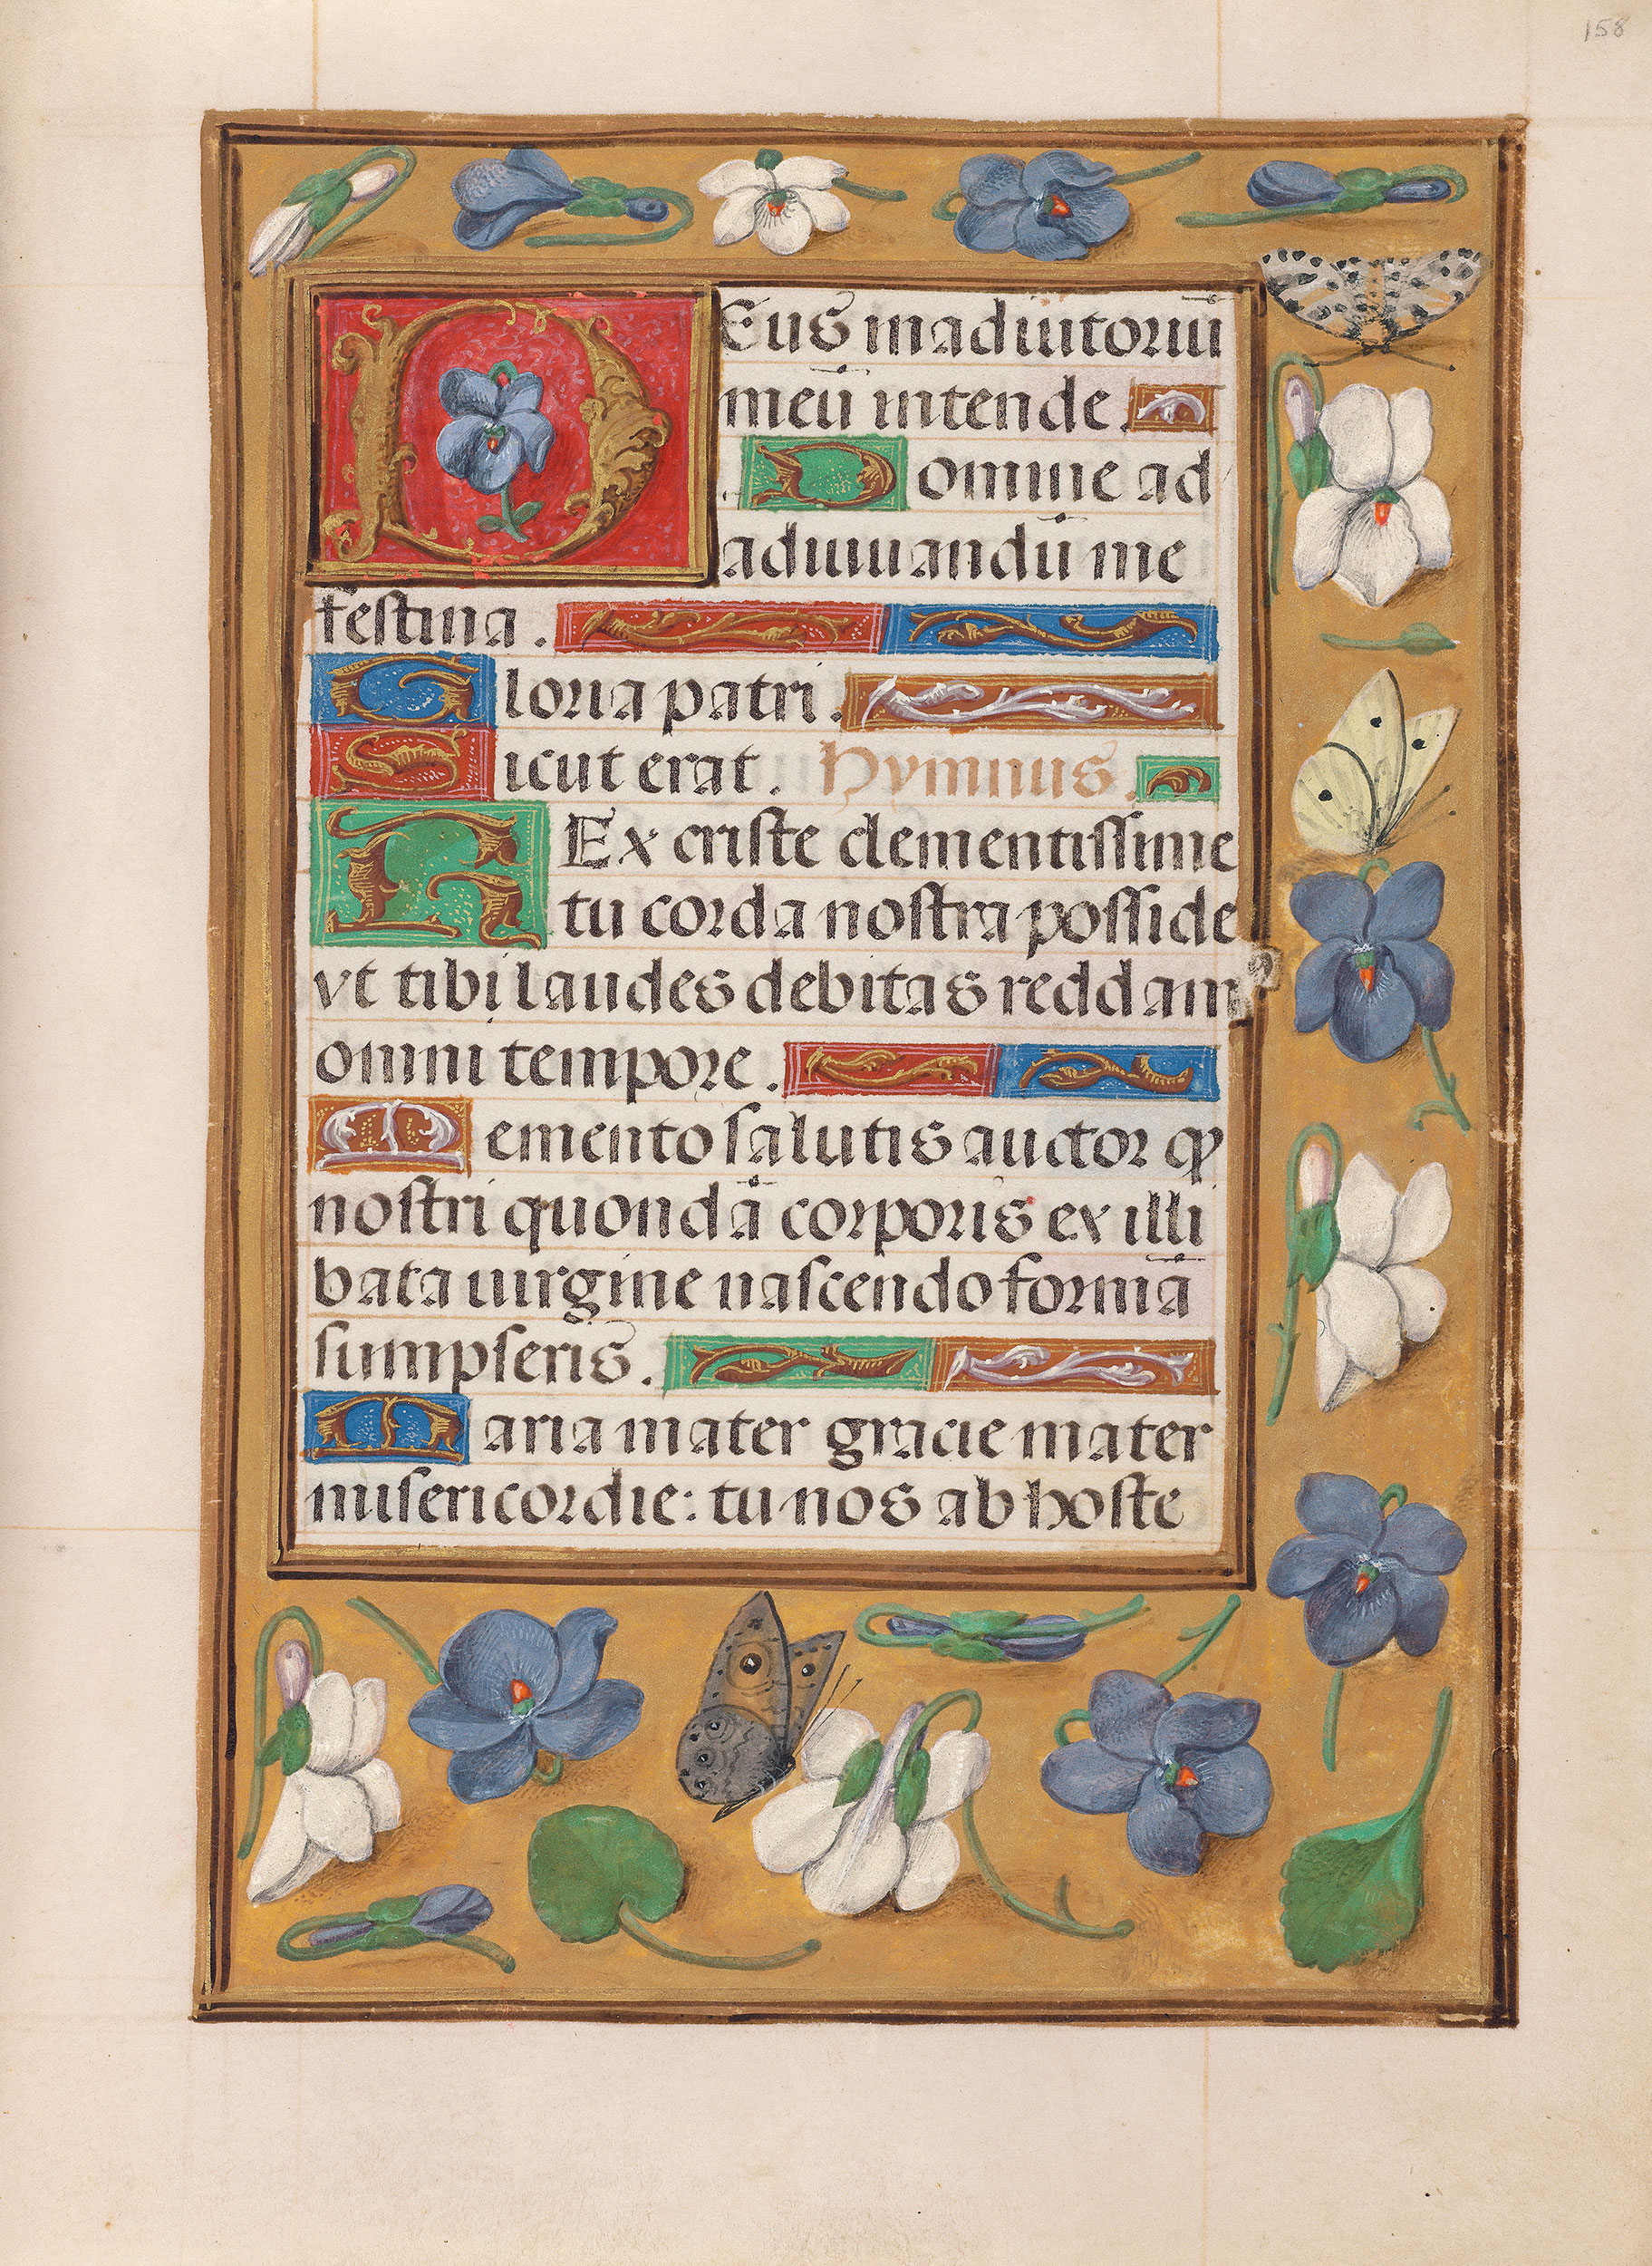 158
DEus in adiutoriū
meū intende.
Domine ad
adiuuandū me
festina.
Gloria patri.
Sicut erat. Hymnus.
REx criste clementissime
tu corda nostra posside
vt tibi laudes debitas reddam9
omni tempore.
Memento salutis auctor qđ
nostri quondā corporis ex illi
bata uirgine nascendo formā
sumpseris.
Maria mater gracie mater
misericordie: tu nos ab hoste